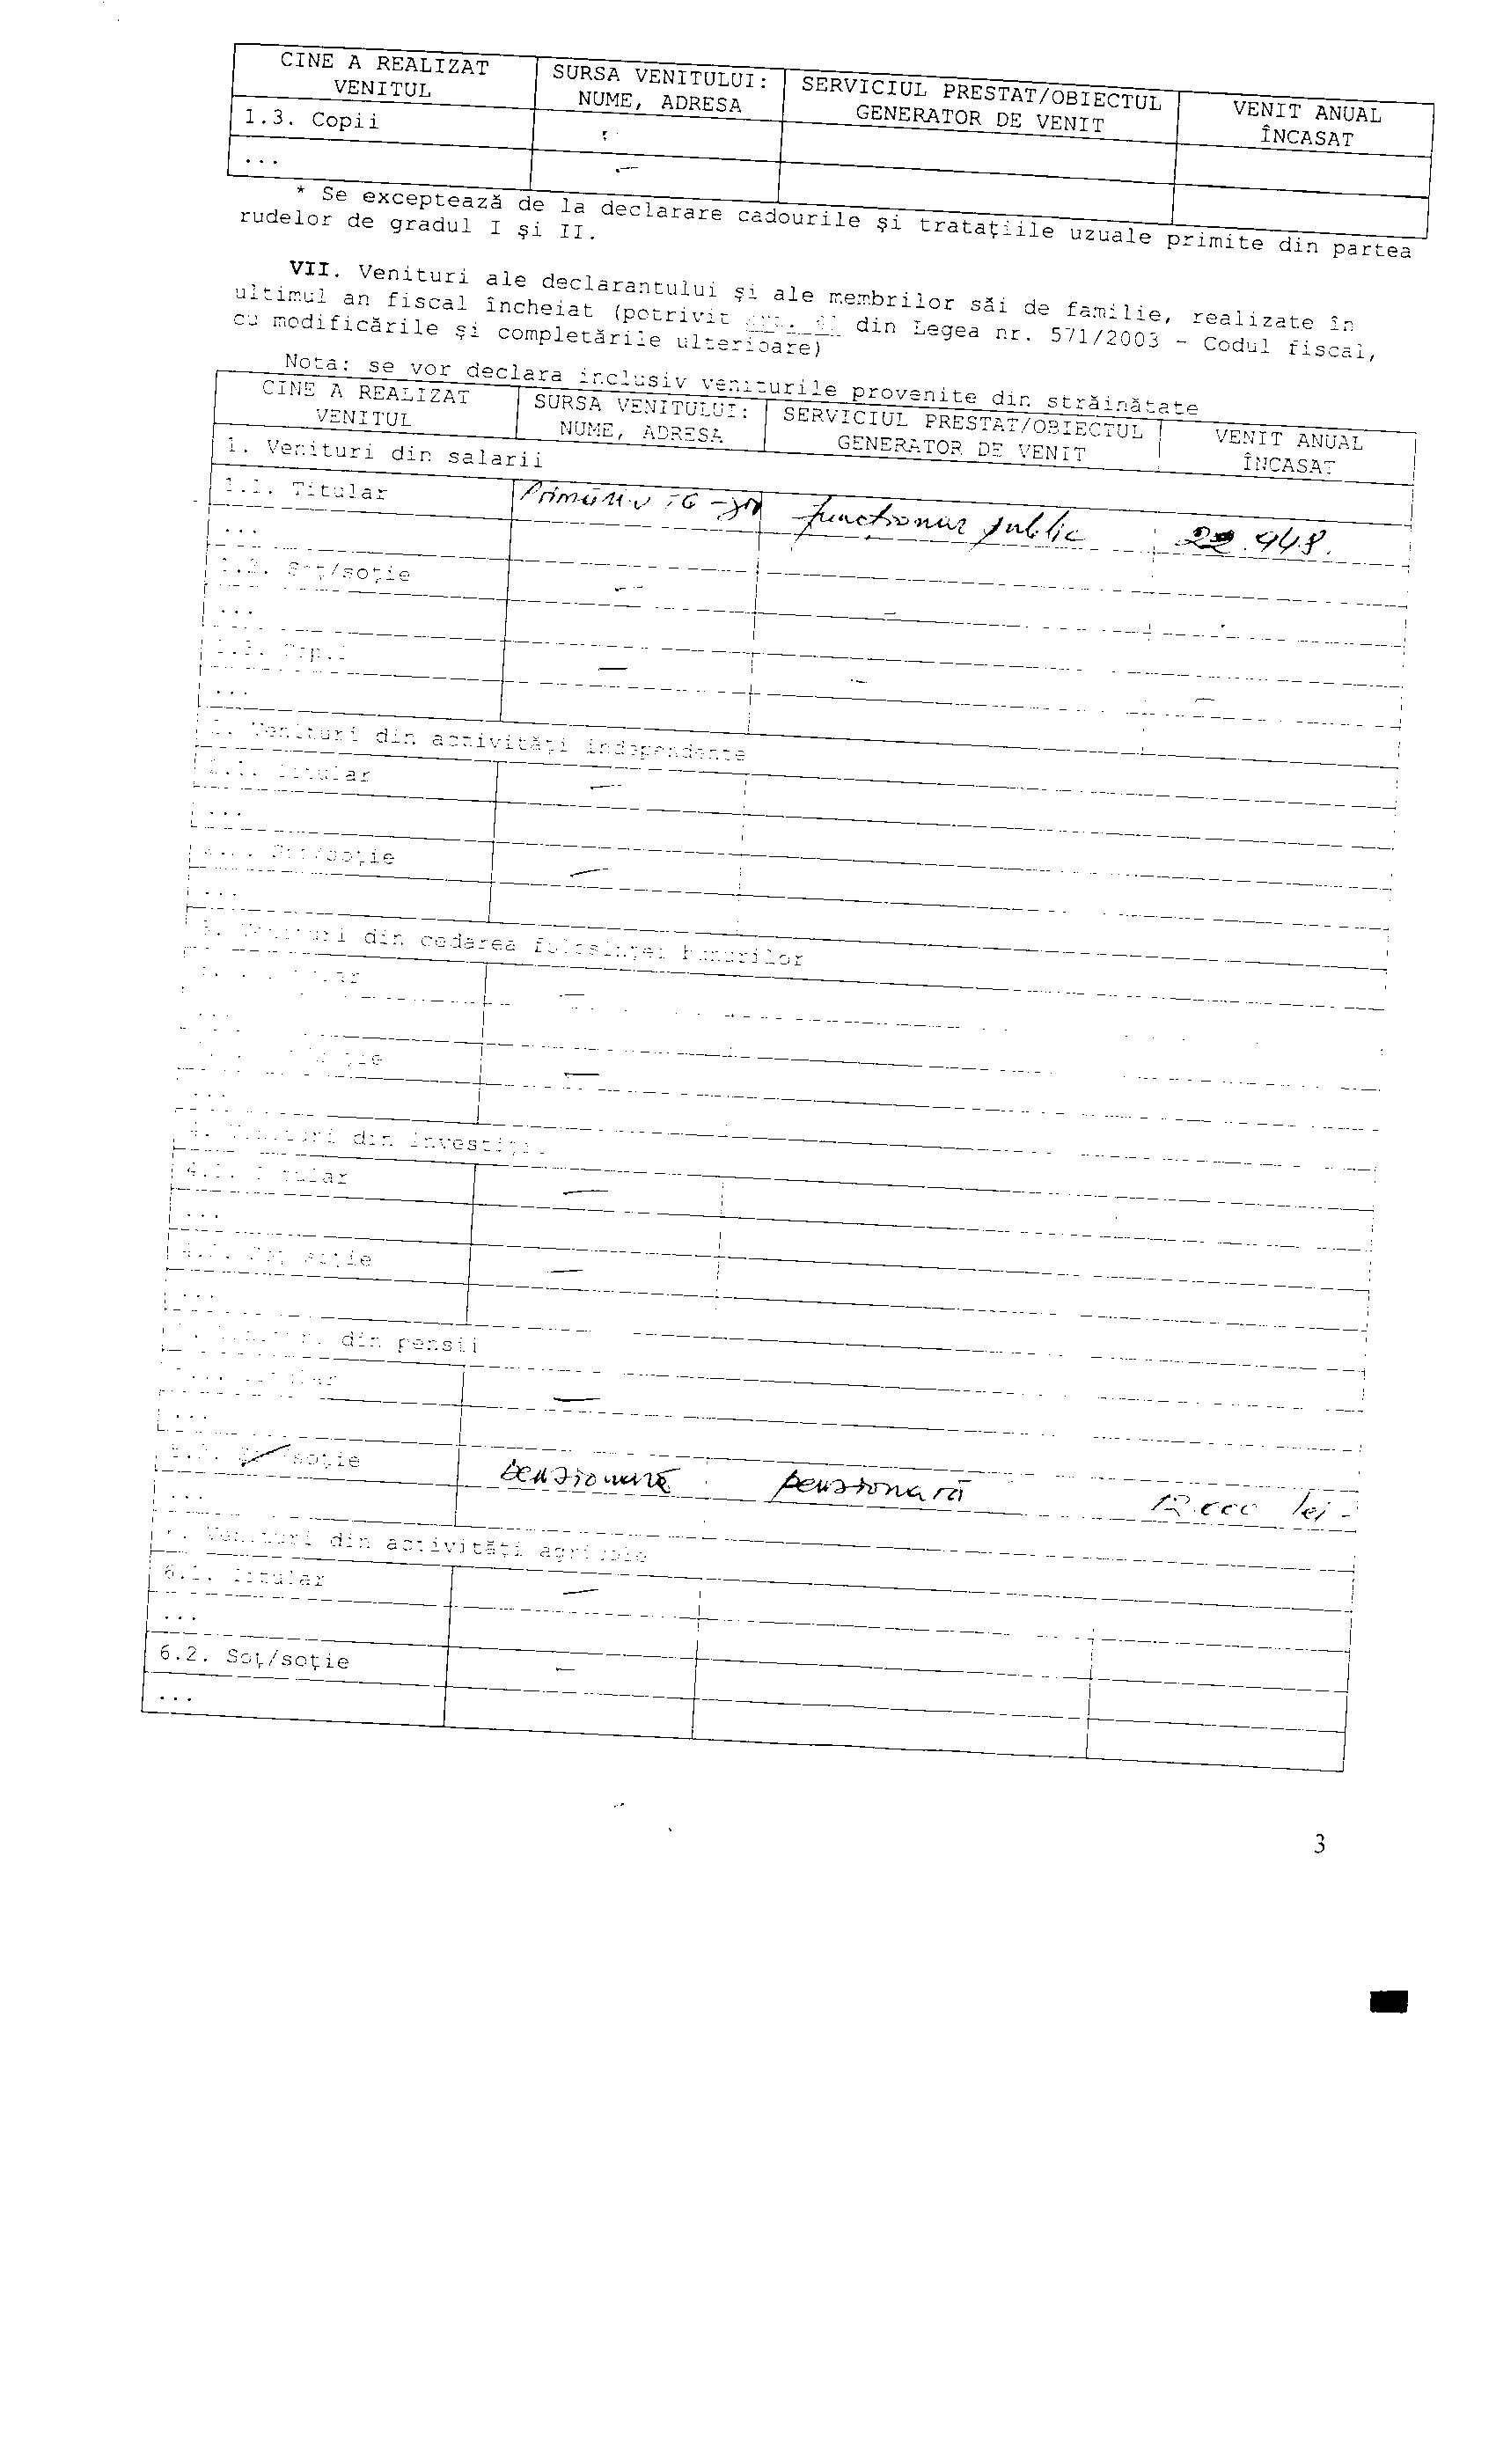 CINE A REALIZAT VENITUL | SURSA VENITULUI: NUME, ADRESA | SERVICIUL PRESTAT/OBIECTUL GENERATOR DE VENIT | VENIT ANUAL ÎNCASAT
1.3. Copii
... –
* Se exceptează de la declarare cadourile şi trataţiile uzuale primite din partea
rudelor de gradul I şi II.
VII. Venituri ale declarantului şi ale membrilor săi de familie, realizate în
ultimul an fiscal încheiat (potrivit din Legea nr. 571/2003 - Codul fiscal,
cu modificările şi completările ulterioare)
Nota: se vor declara inclusiv veniturile provenite din străinătate
CINE A REALIZAT VENITUL | SURSA VENITULUI: NUME, ADRESA | SERVICIUL PRESTAT/OBIECTUL GENERATOR DE VENIT | VENIT ANUAL ÎNCASAT
1. Venituri din salarii
1.1. Titular | funcţionar public | .948.
...
1.2. Soţ/soţie – –
...
1.3. Copii – – –
...
2. Venituri din activităţi independente
2.1. Titular –
...
Soţ/soţie –
...
3. Venituri din cedarea folosinţei bunurilor
–
...
–
...
4. Venituri din investiţii
4.1. Titular –
...
4.2. Soţ/soţie –
...
Venituri din pensii
Titular –
...
soţie | pensionară | pensionară | 12.000 lei -
...
Venituri din activităţi agricole
6.1. Titular –
...
6.2. Soţ/soţie –
...
3